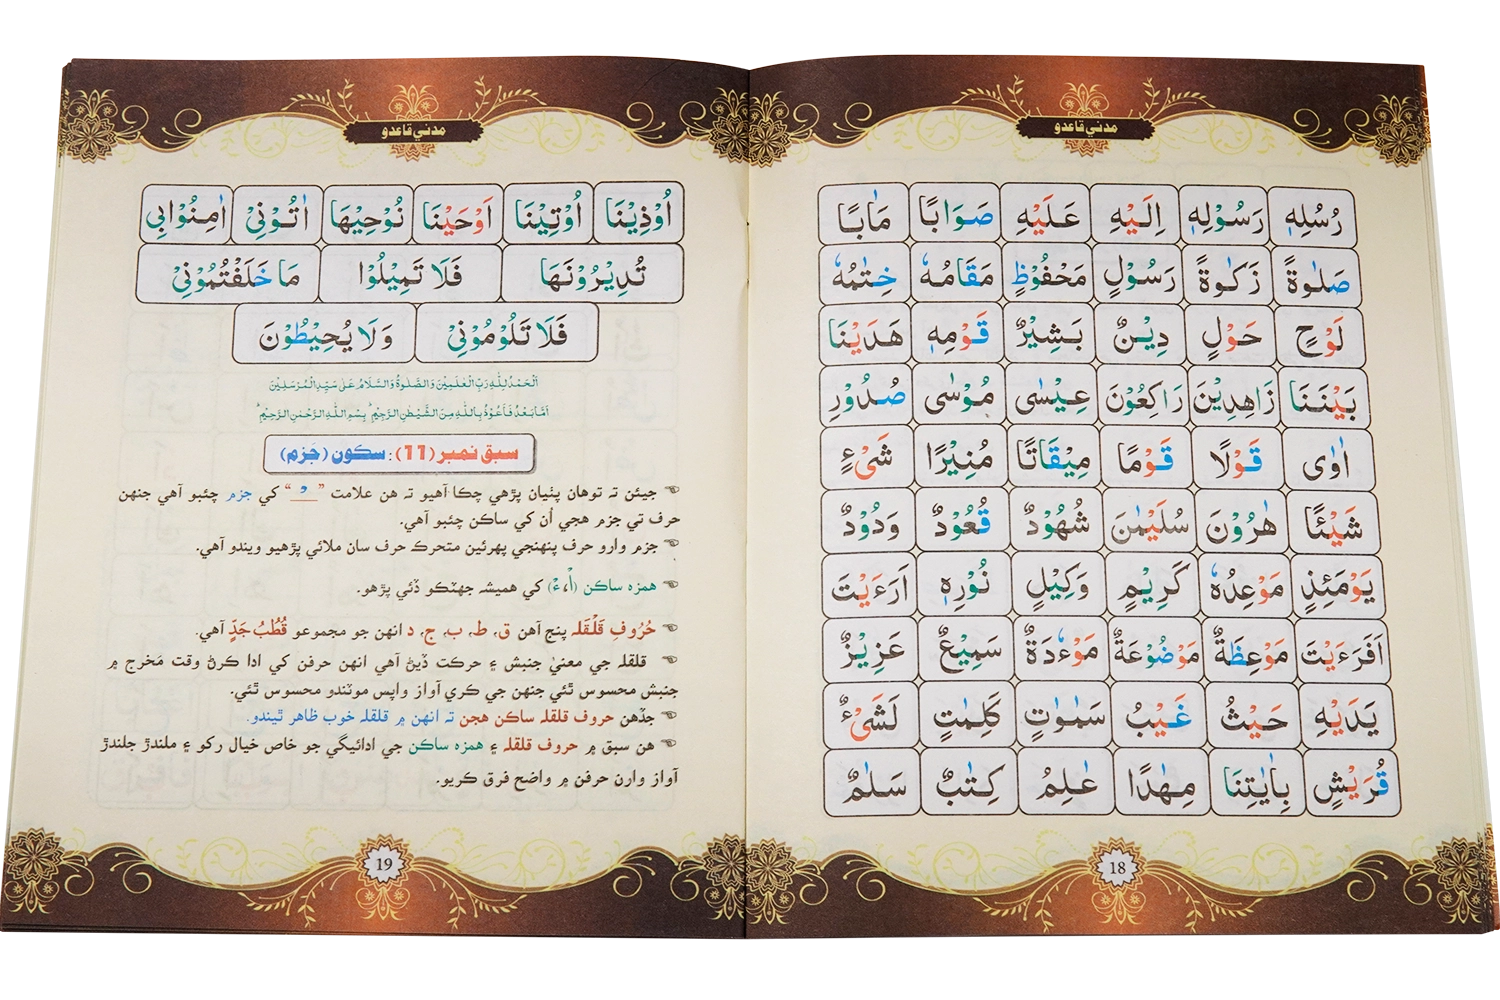 مدني قاعدو
رُسُلِهٖ رَسُوْلِهٖ اِلَيْهِ عَلَيْهِ صَوَابًا مَاٰبًا
صَلٰوةً زَكٰوةً رَسُوْلٍ مَحْفُوْظٍ مَقَامُهٗ خِتٰمُهٗ
لَوْحٍ حَوْلٍ دِيْنٌ بَشِيْرٌ قَوْمِهٖ هَدَيْنَا
بَيْنَنَا زَاهِدِيْنَ رَاكِعُوْنَ عِيْسٰى مُوْسٰى صُدُوْرِ
اٰوٰى قَوْلًا قَوْمًا مِيْقَاتًا مُنِيْرًا شَیْءٍ
شَيْئًا هٰرُوْنَ سُلَيْمٰنَ شُهُوْدٌ قُعُوْدٌ وَدُوْدٌ
يَوْمَئِذٍ مَوْعِدُهٗ كَرِيْمٍ وَكِيْلٍ نُوْرِهٖ اَرَءَيْتَ
اَفَرَءَيْتَ مَوْعِظَةٌ مَوْضُوْعَةٌ مَوْءٗدَةُ سَمِيْعٌ عَزِيْزٌ
يَدَيْهِ حَيْثُ غَيْبُ سَمٰوٰتٍ كَلِمٰتٍ لَشَیْءٌ
قُرَيْشٍ بِاٰيٰتِنَا مِهٰدًا عٰلِمُ كِتٰبٌ سَلٰمٌ
18
مدني قاعدو
اُوْذِيْنَا اُوْتِيْنَا اَوْحَيْنَا نُوْحِيْهَا اٰتُوْنِیْ اٰمِنُوْابِی
تُدِيْرُوْنَهَا فَلَا تَمِيْلُوْا مَا خَلَفْتُمُوْنِیْ
فَلَا تَلُوْمُوْنِیْ وَلَا يُحِيْطُوْنَ
اَلْحَمْدُ لِلّٰهِ رَبِّ الْعٰلَمِيْنَ وَالصَّلٰوةُ وَالسَّلَامُ عَلٰى سَيِّدِ الْمُرْسَلِيْنَ
اَمَّا بَعْدُ فَاَعُوْذُ بِاللّٰهِ مِنَ الشَّيْطٰنِ الرَّجِيْمِ ؕ بِسْمِ اللّٰهِ الرَّحْمٰنِ الرَّحِيْمِ ؕ
سبق نمبر (11): سڪون (جَزم)
جيئن تہ توهان پٺيان پڙهي چڪا آهيو تہ هن علامت “ ْ ” کي جزم چئبو آهي جنهن
حرف تي جزم هجي اُن کي ساڪن چئبو آهي.
جزم وارو حرف پنهنجي پهرئين متحرڪ حرف سان ملائي پڙهيو ويندو آهي.
همزه ساڪن (أْ،ءْ) کي هميشہ جهٽڪو ڏئي پڙهو.
حُرُوفِ قَلْقَلہ پنج آهن ق، ط، ب، ج، د انهن جو مجموعو قُطُبُ جَدٍّ آهي.
قلقلہ جي معنيٰ جنبش ۽ حرڪت ڏيڻ آهي انهن حرفن کي ادا ڪرڻ وقت مَخرج ۾
جنبش محسوس ٿئي جنهن جي ڪري آواز واپس موٽندو محسوس ٿئي.
جڏهن حروف قلقلہ ساڪن هجن تہ انهن ۾ قلقلہ خوب ظاهر ٿيندو.
هن سبق ۾ حروف قلقلہ ۽ همزه ساڪن جي ادائيگي جو خاص خيال رکو ۽ ملندڙ جلندڙ
آواز وارن حرفن ۾ واضح فرق ڪريو.
19